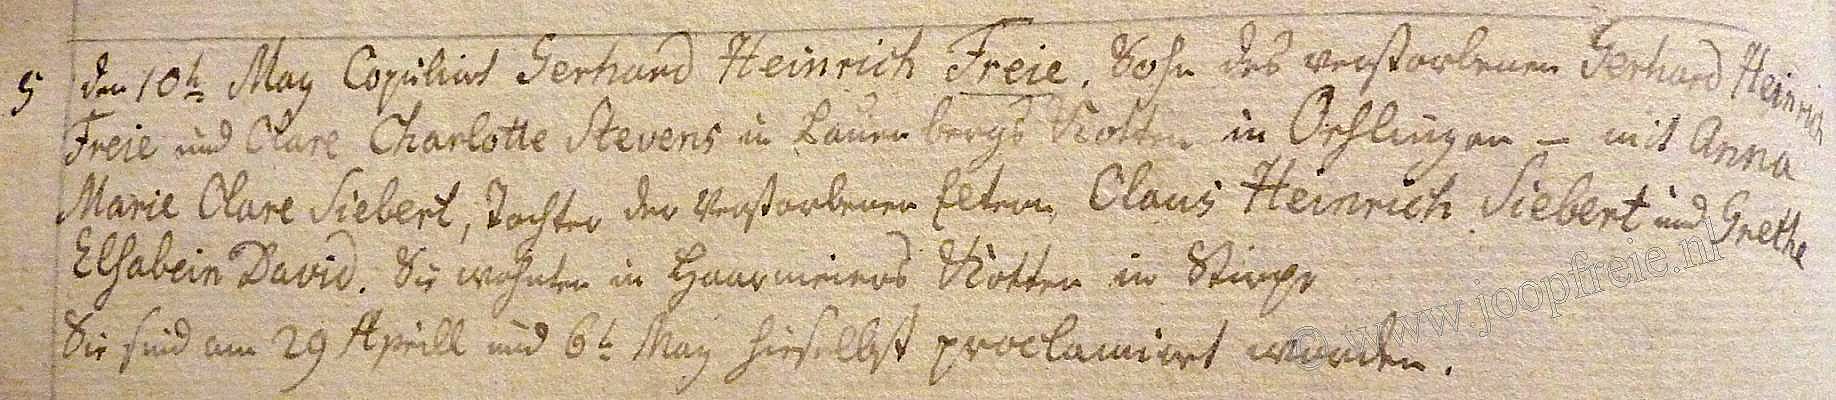 5 den 10t May Copulirt Gerhard Heinrich Freie, Sohn des verstorbenen Gerhard Heinrich
Freie und Clare Charlotte Stevens in Lauenbergs Kotten in Oehlingen – mit Anna
Marie Clare Siebert, Tochter der verstorbenen Eltern, Claus Heinrich Siebert und Grethe
Elsabein David. Sie wohnten in Haarmeiers Kotten in Stirpe
Sie sind am 29 Aprill und 6t May hieselbst proclamirt worden.
© www.joopfreie.nl